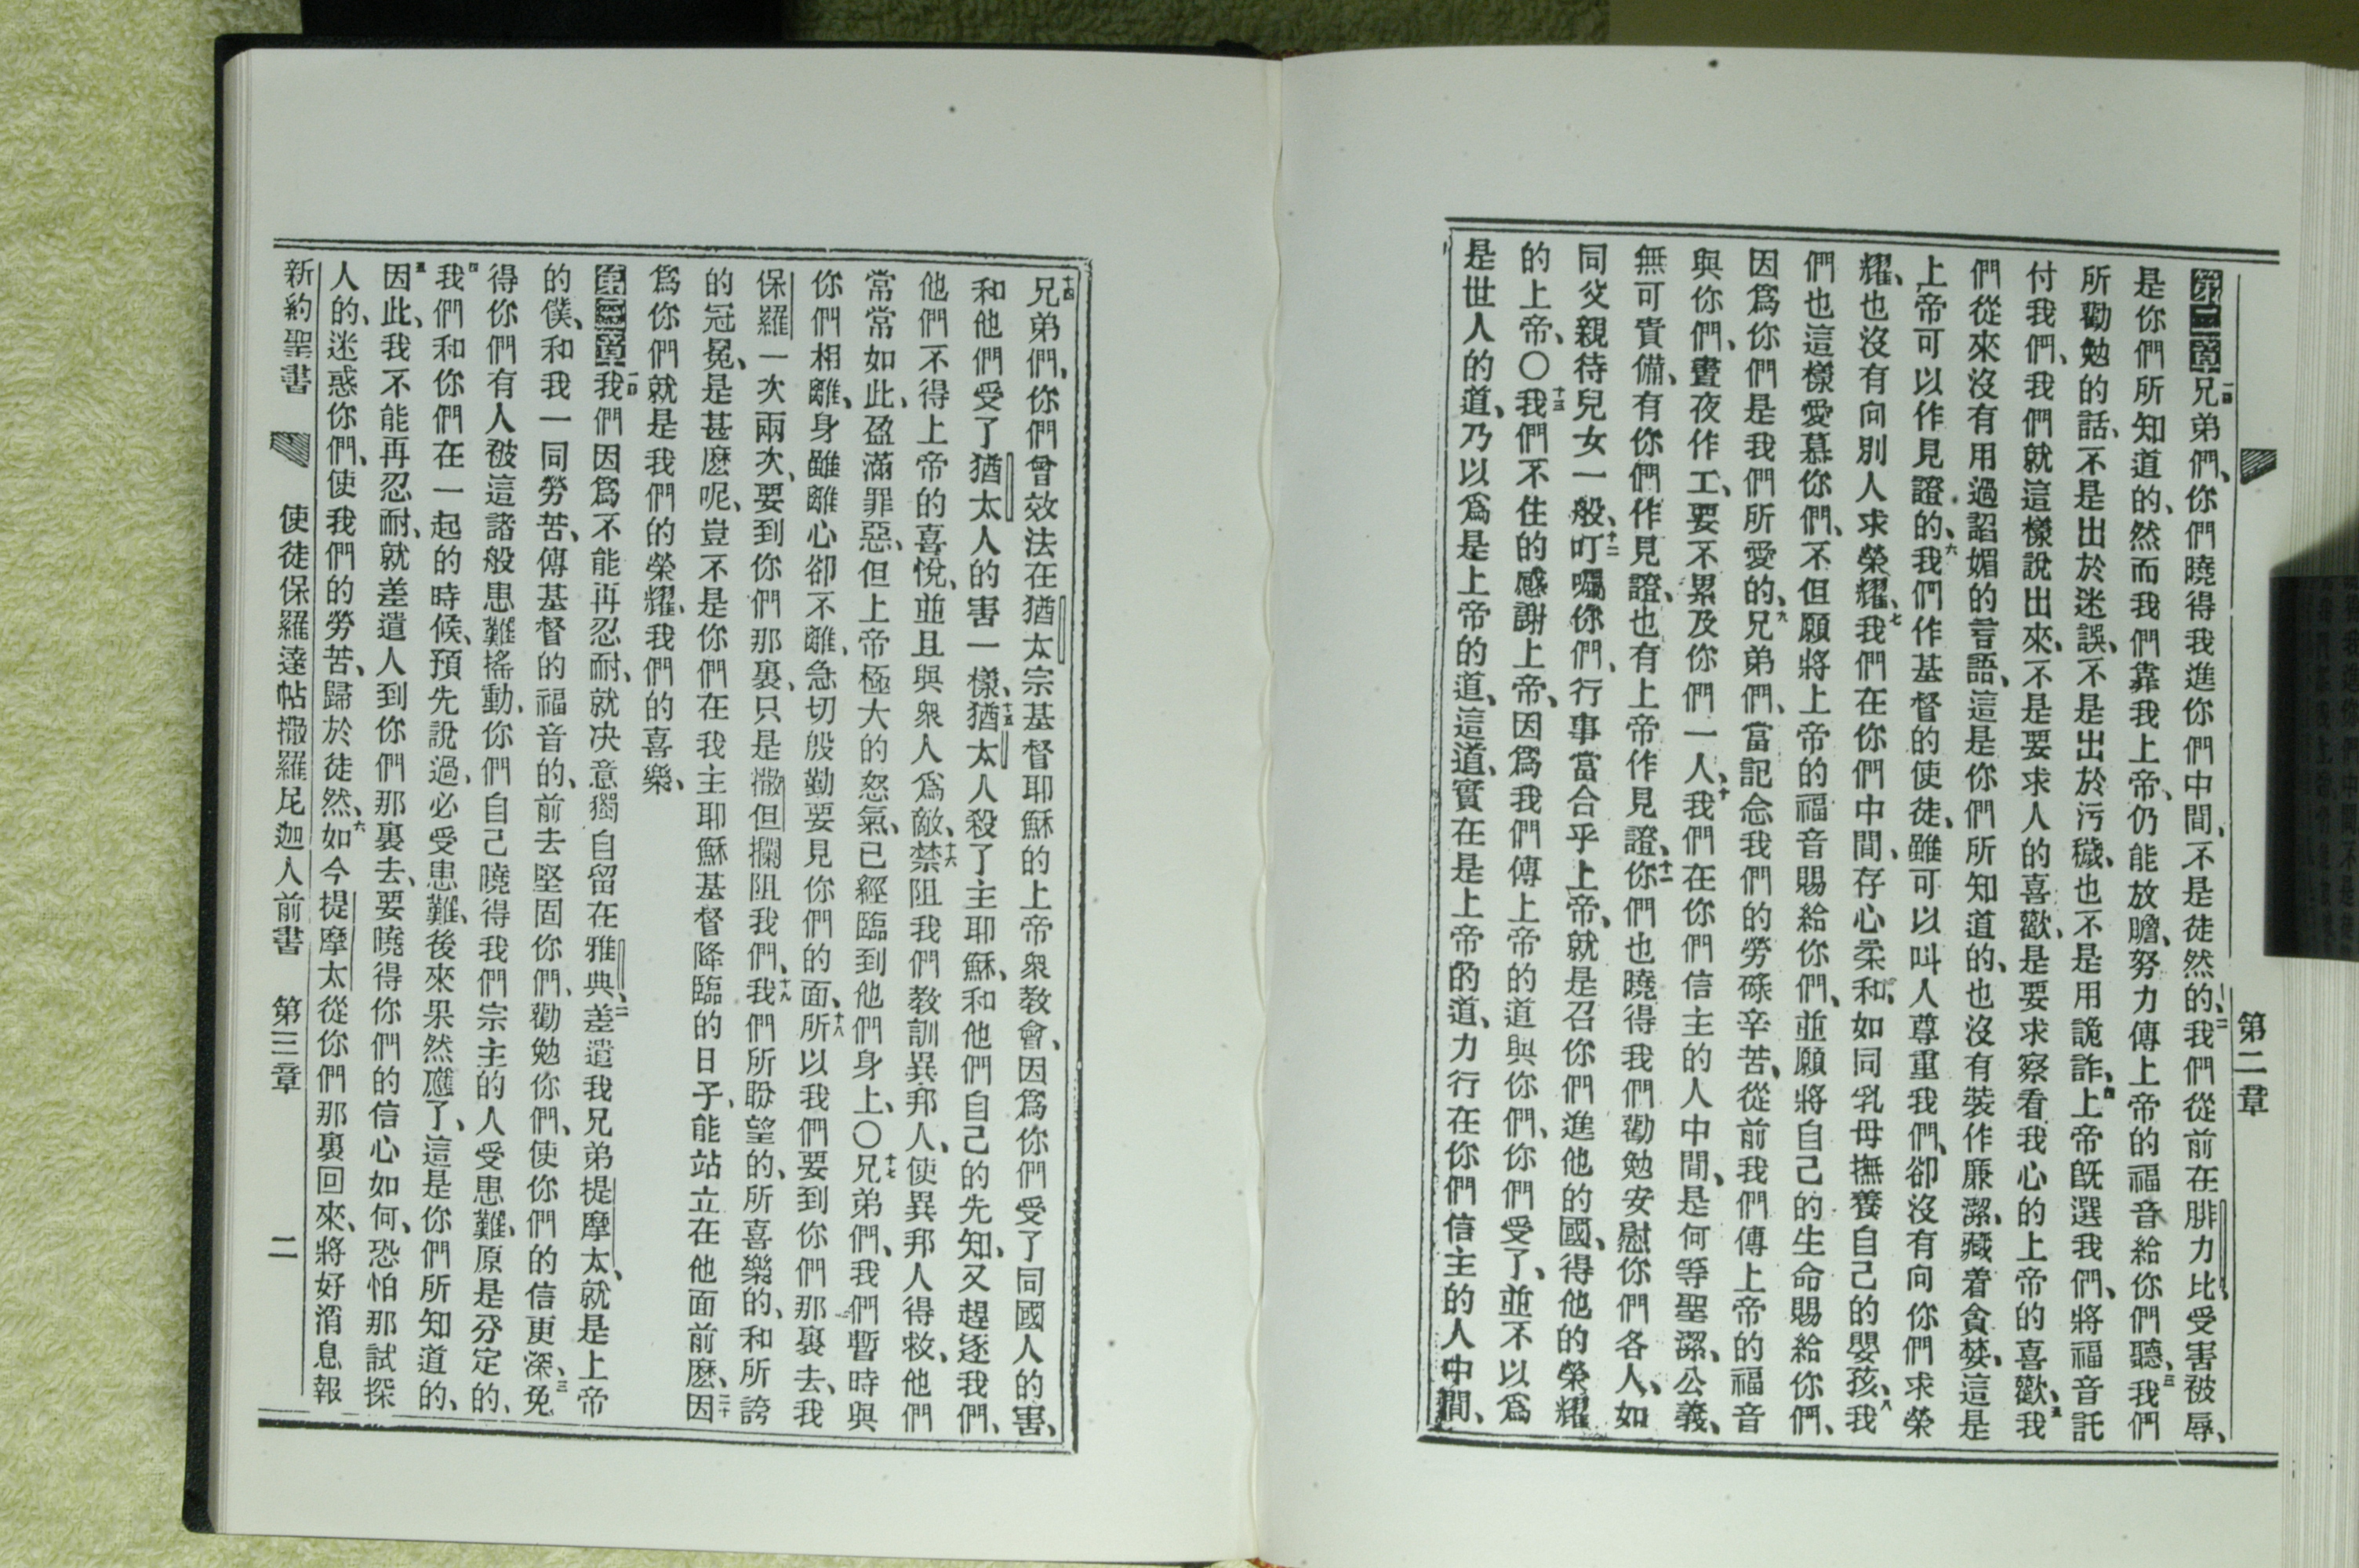 第二章
第二章一節兄弟們、你們曉得我進你們中間、不是徒然的、二我們從前在腓力比受害被辱、
是你們所知道的、然而我們靠我上帝、仍能放膽、努力傳上帝的福音給你們聽、三我們
所勸勉的話、不是出於迷誤、不是出於污穢、也不是用詭詐、四上帝旣選我們、將福音託
付我們、我們就這樣說出來、不是要求人的喜歡、是要求察看我心的上帝的喜歡、五我
們從來沒有用過諂媚的言語、這是你們所知道的、也沒有裝作廉潔、藏着貪婪、這是
上帝可以作見證的、六我們作基督的使徒、雖可以叫人尊重我們、卻沒有向你們求榮
耀、也沒有向別人求榮耀、七我們在你們中間、存心柔和、如同乳母撫養自己的嬰孩、八我
們也這樣愛慕你們、不但願將上帝的福音賜給你們、並願將自己的生命賜給你們、
因爲你們是我們所愛的、九兄弟們、當記念我們的勞碌辛苦、從前我們傳上帝的福音
與你們、晝夜作工、要不累及你們一人、十我們在你們信主的人中間、是何等聖潔、公義、
無可責備、有你們作見證、也有上帝作見證、十一你們也曉得我們勸勉安慰你們各人、如
同父親待兒女一般、十二叮囑你們、行事當合乎上帝、就是召你們進他的國、得他的榮耀
的上帝、〇十三我們不住的感謝上帝、因爲我們傳上帝的道與你們、你們受了、並不以爲
是世人的道、乃以爲是上帝的道、這道、實在是上帝的道、力行在你們信主的人中間、
十四兄弟們、你們曾效法在猶太宗基督耶穌的上帝衆教會、因爲你們受了同國人的害、
和他們受了猶太人的害一樣、十五猶太人殺了主耶穌、和他們自己的先知、又趕逐我們、
他們不得上帝的喜悅、並且與衆人爲敵、十六禁阻我們教訓異邦人、使異邦人得救、他們
常常如此、盈滿罪惡、但上帝極大的怒氣、已經臨到他們身上、〇十七兄弟們、我們暫時與
你們相離、身雖離心卻不離、急切殷勤要見你們的面、十八所以我們要到你們那裏去、我
保羅一次兩次、要到你們那裏、只是撒但攔阻我們、十九我們所盼望的、所喜樂的、和所誇
的冠冕、是甚麽呢、豈不是你們在我主耶穌基督降臨的日子、能站立在他面前麽、二十因
爲你們就是我們的榮耀、我們的喜樂、
第三章一節我們因爲不能再忍耐、就决意獨自留在雅典、二差遣我兄弟提摩太、就是上帝
的僕、和我一同勞苦、傳基督的福音的、前去堅固你們、勸勉你們、使你們的信更深、三免
得你們有人被這諸般患難搖動、你們自己曉得我們宗主的人受患難、原是分定的、
四我們和你們在一起的時候、預先說過、必受患難、後來果然應了、這是你們所知道的、
五因此、我不能再忍耐、就差遣人到你們那裏去、要曉得你們的信心如何、恐怕那試探
人的、迷惑你們、使我們的勞苦、歸於徒然、六如今提摩太從你們那裏回來、將好消息報
新約聖書 使徒保羅達帖撒羅尼迦人前書 第三章 二